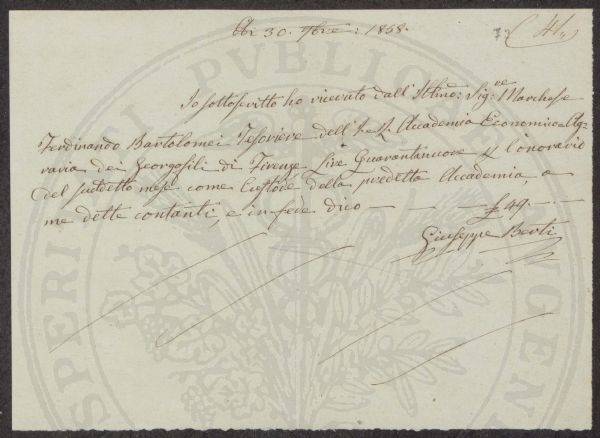 Adi 30. 9bre: 1858.
41,,
Io sottoscritto ho ricevuto dall' Illmo: Sig:re Marchese
Ferdinando Bartolomei Tesoriere dell' I. e R. Accademia Economico=Ag=
raria dei Georgofili di Firenze Lire Quarantanove p l'onorario
del suddetto mese come Custode della predetta Accademia, a
me dette contanti, e in fede dico — £ 49. —
Giuseppe Berti
PROSPERITATI PUBLICAE AUGENDAE